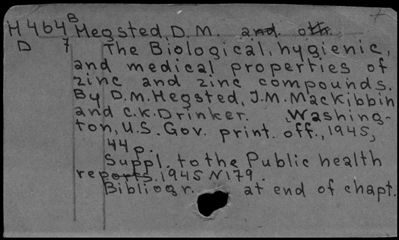 H464 B Hegsted, D. M. and oth.
D 7 The Biological, hygienic,
and medical properties of
zinc and zinc compounds.
By D.M. Hegsted, J.M. MacKibbin
and C.K. Drinker. Washing-
ton, U.S. Gov. print. off., 1945,
44 p.
Suppl. to the Public health
reports. 1945 N 179.
Bibliogr. at end of chapt.